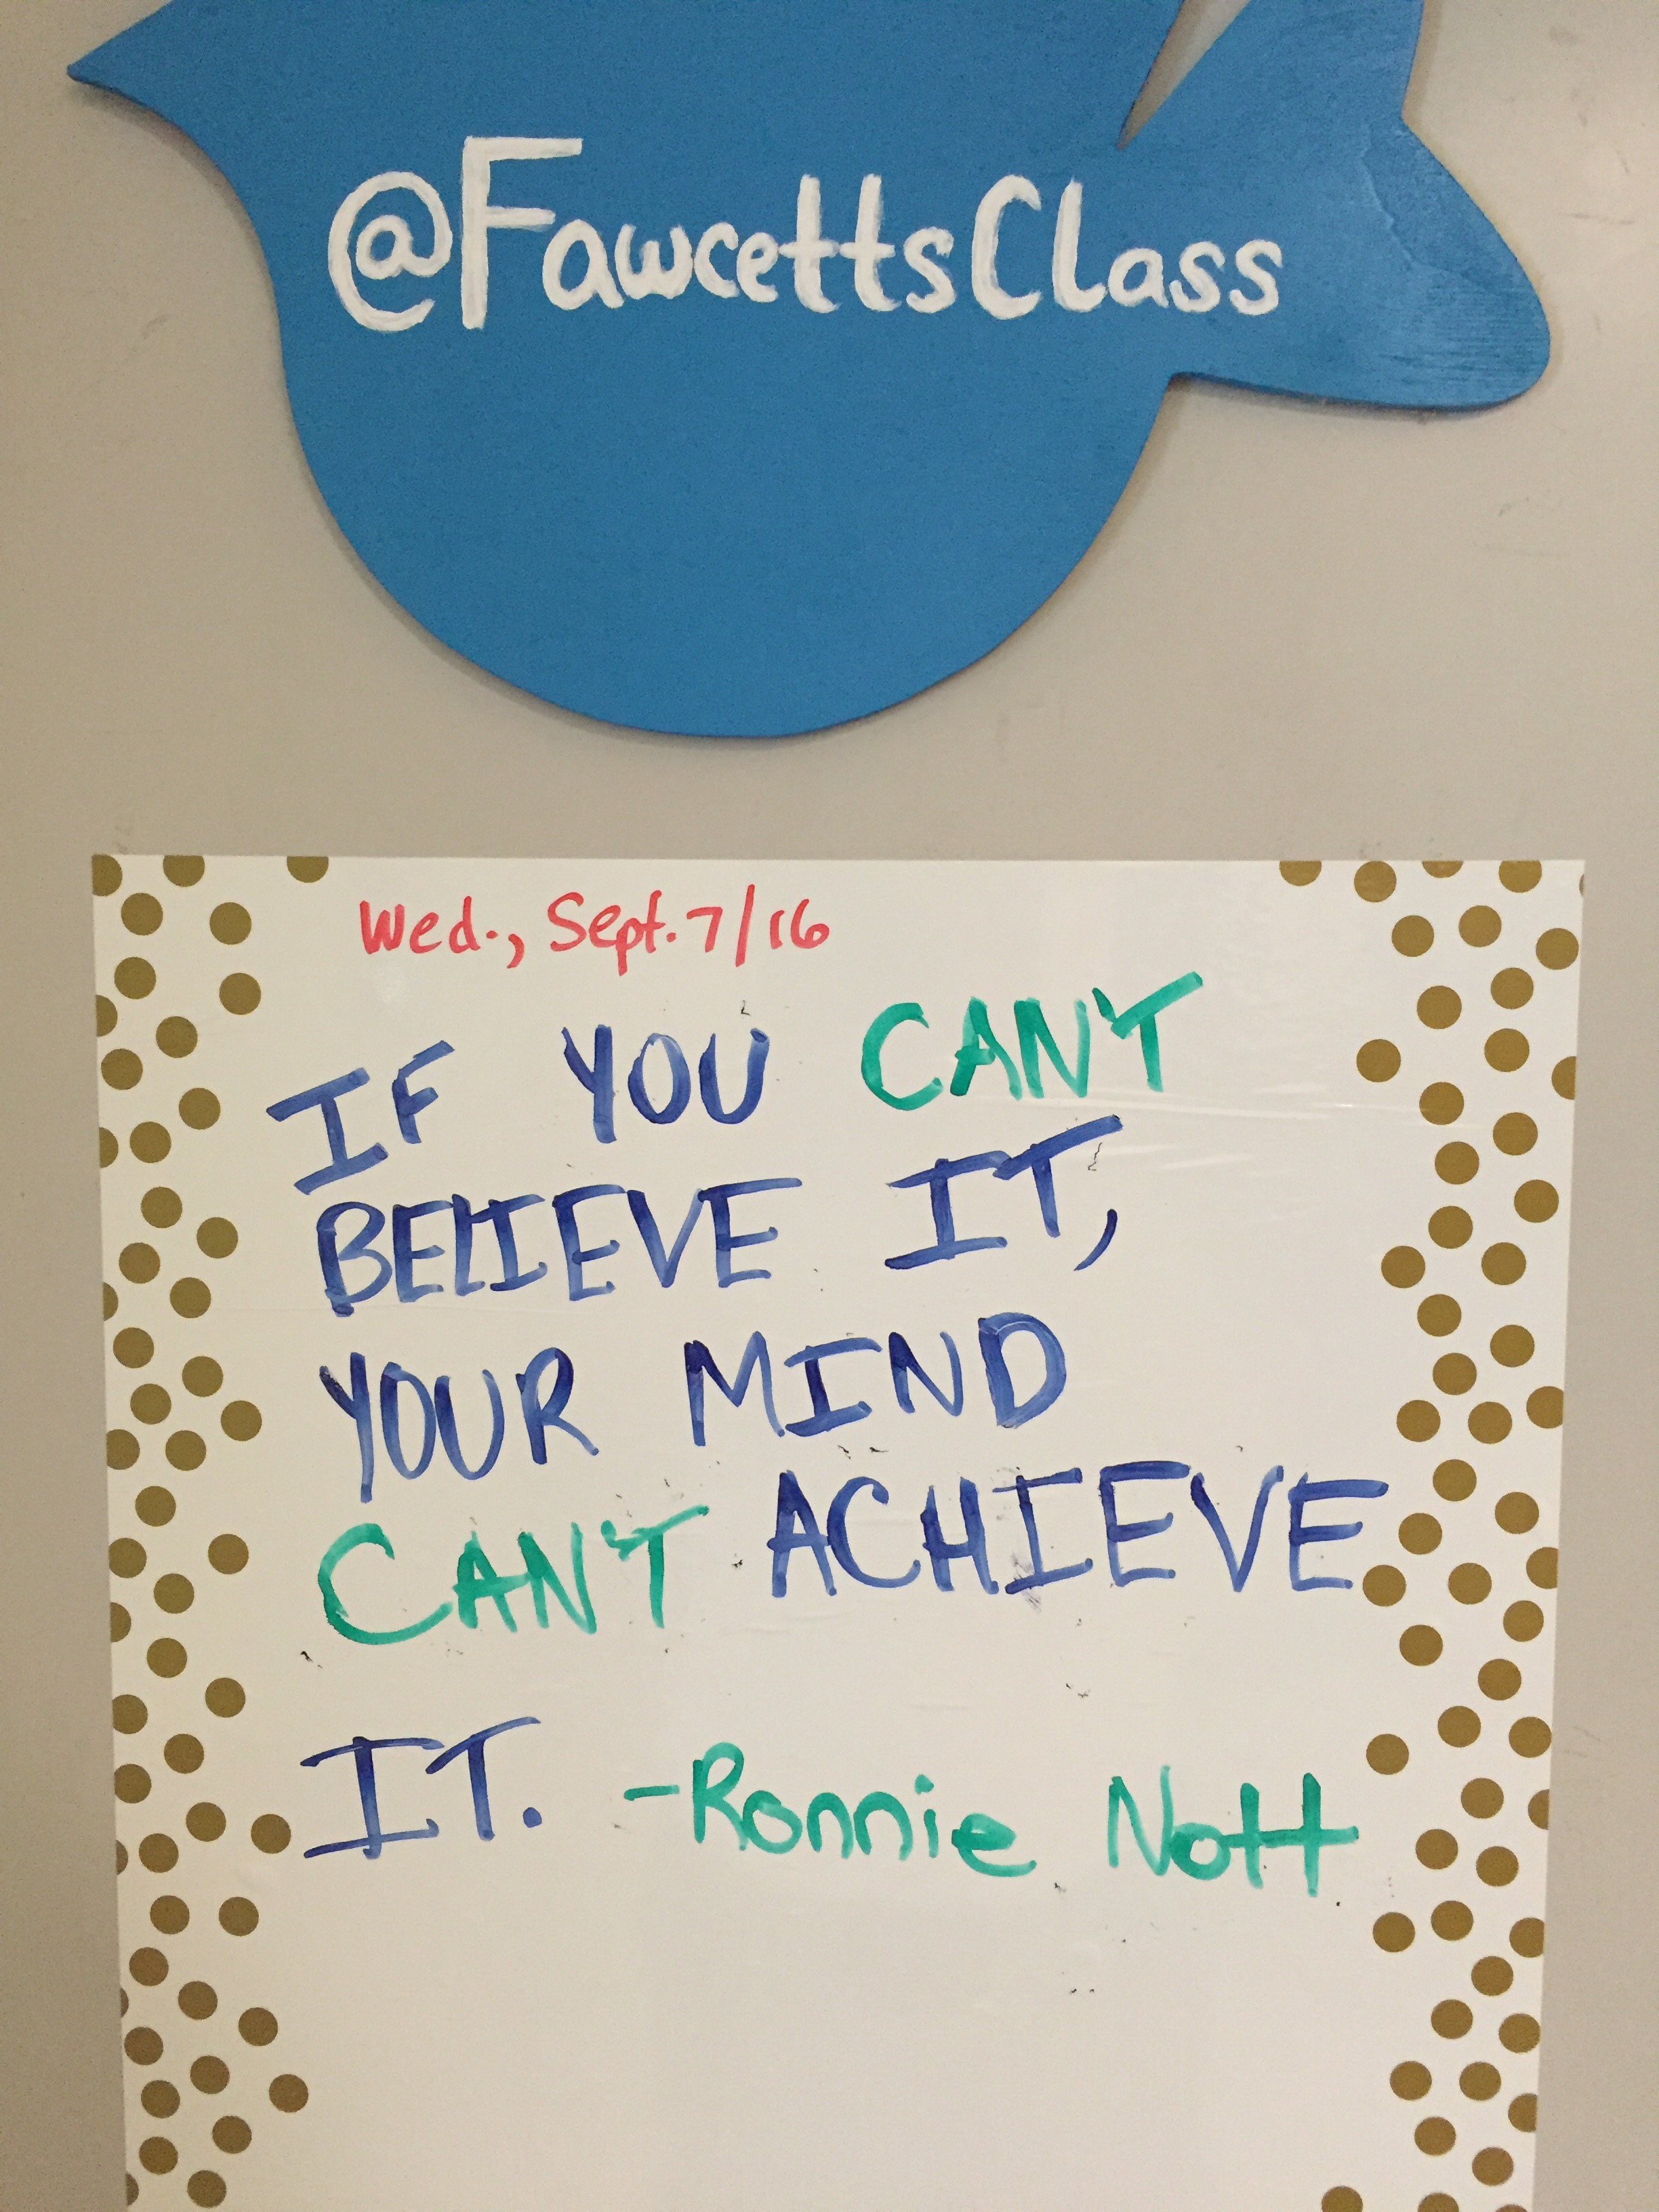 @FawcettsClass
Wed., Sept. 7/16
IF YOU CAN'T
BELIEVE IT,
YOUR MIND
CAN'T ACHIEVE
IT. -Ronnie Nott